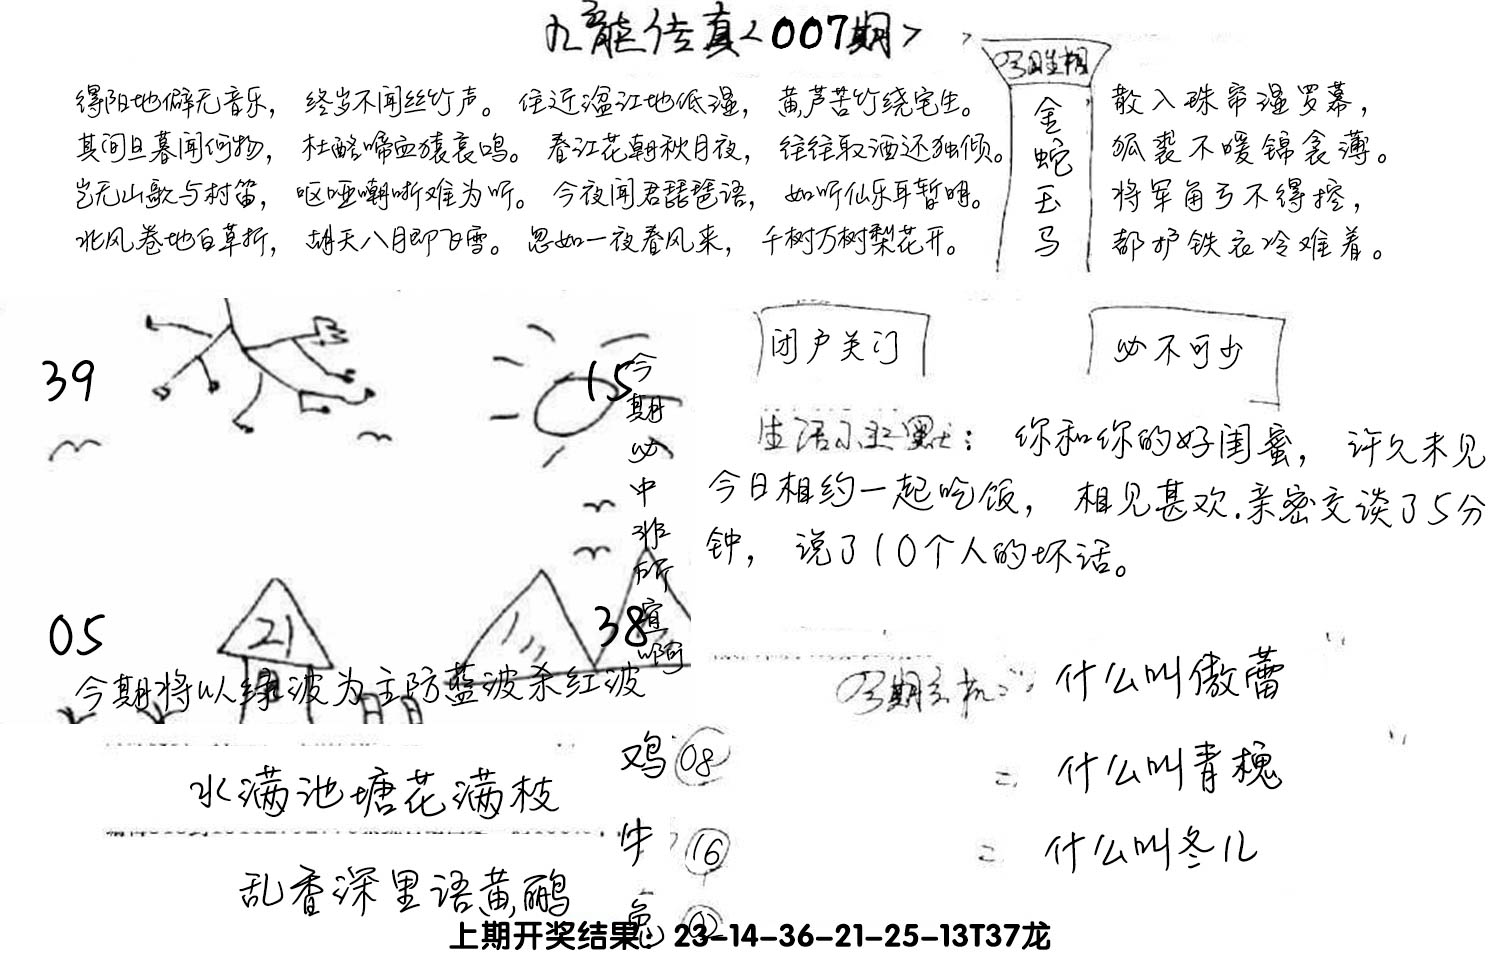 九龙传真<007期>
得阳地僻无音乐， 终岁不闻丝竹声。 住近湓江地低湿， 黄芦苦竹绕宅生。
其间旦暮闻何物， 杜鹃啼血猿哀鸣。 春江花朝秋月夜， 往往取酒还独倾。
岂无山歌与村笛， 呕哑嘲哳难为听。 今夜闻君琵琶语， 如听仙乐耳暂明。
北风卷地白草折， 胡天八月即飞雪。 忽如一夜春风来， 千树万树梨花开。
金蛇玉马
散入珠帘湿罗幕，
狐裘不暖锦衾薄。
将军角弓不得控，
都护铁衣冷难着。
39
15
05
21
38
今期必中非所宜啊
今期将以绿波为主防蓝波杀红波
闭户关门
必不可少
生活小幽默：你和你的好闺蜜， 许久未见
今日相约一起吃饭， 相见甚欢.亲密交谈了5分
钟， 说了10个人的坏话。
什么叫傲蕾
二 什么叫青槐
二 什么叫冬儿
水满池塘花满枝
乱香深里语黄鹂
鸡 08
牛 16
兔 02
上期开奖结果：23-14-36-21-25-13T37龙